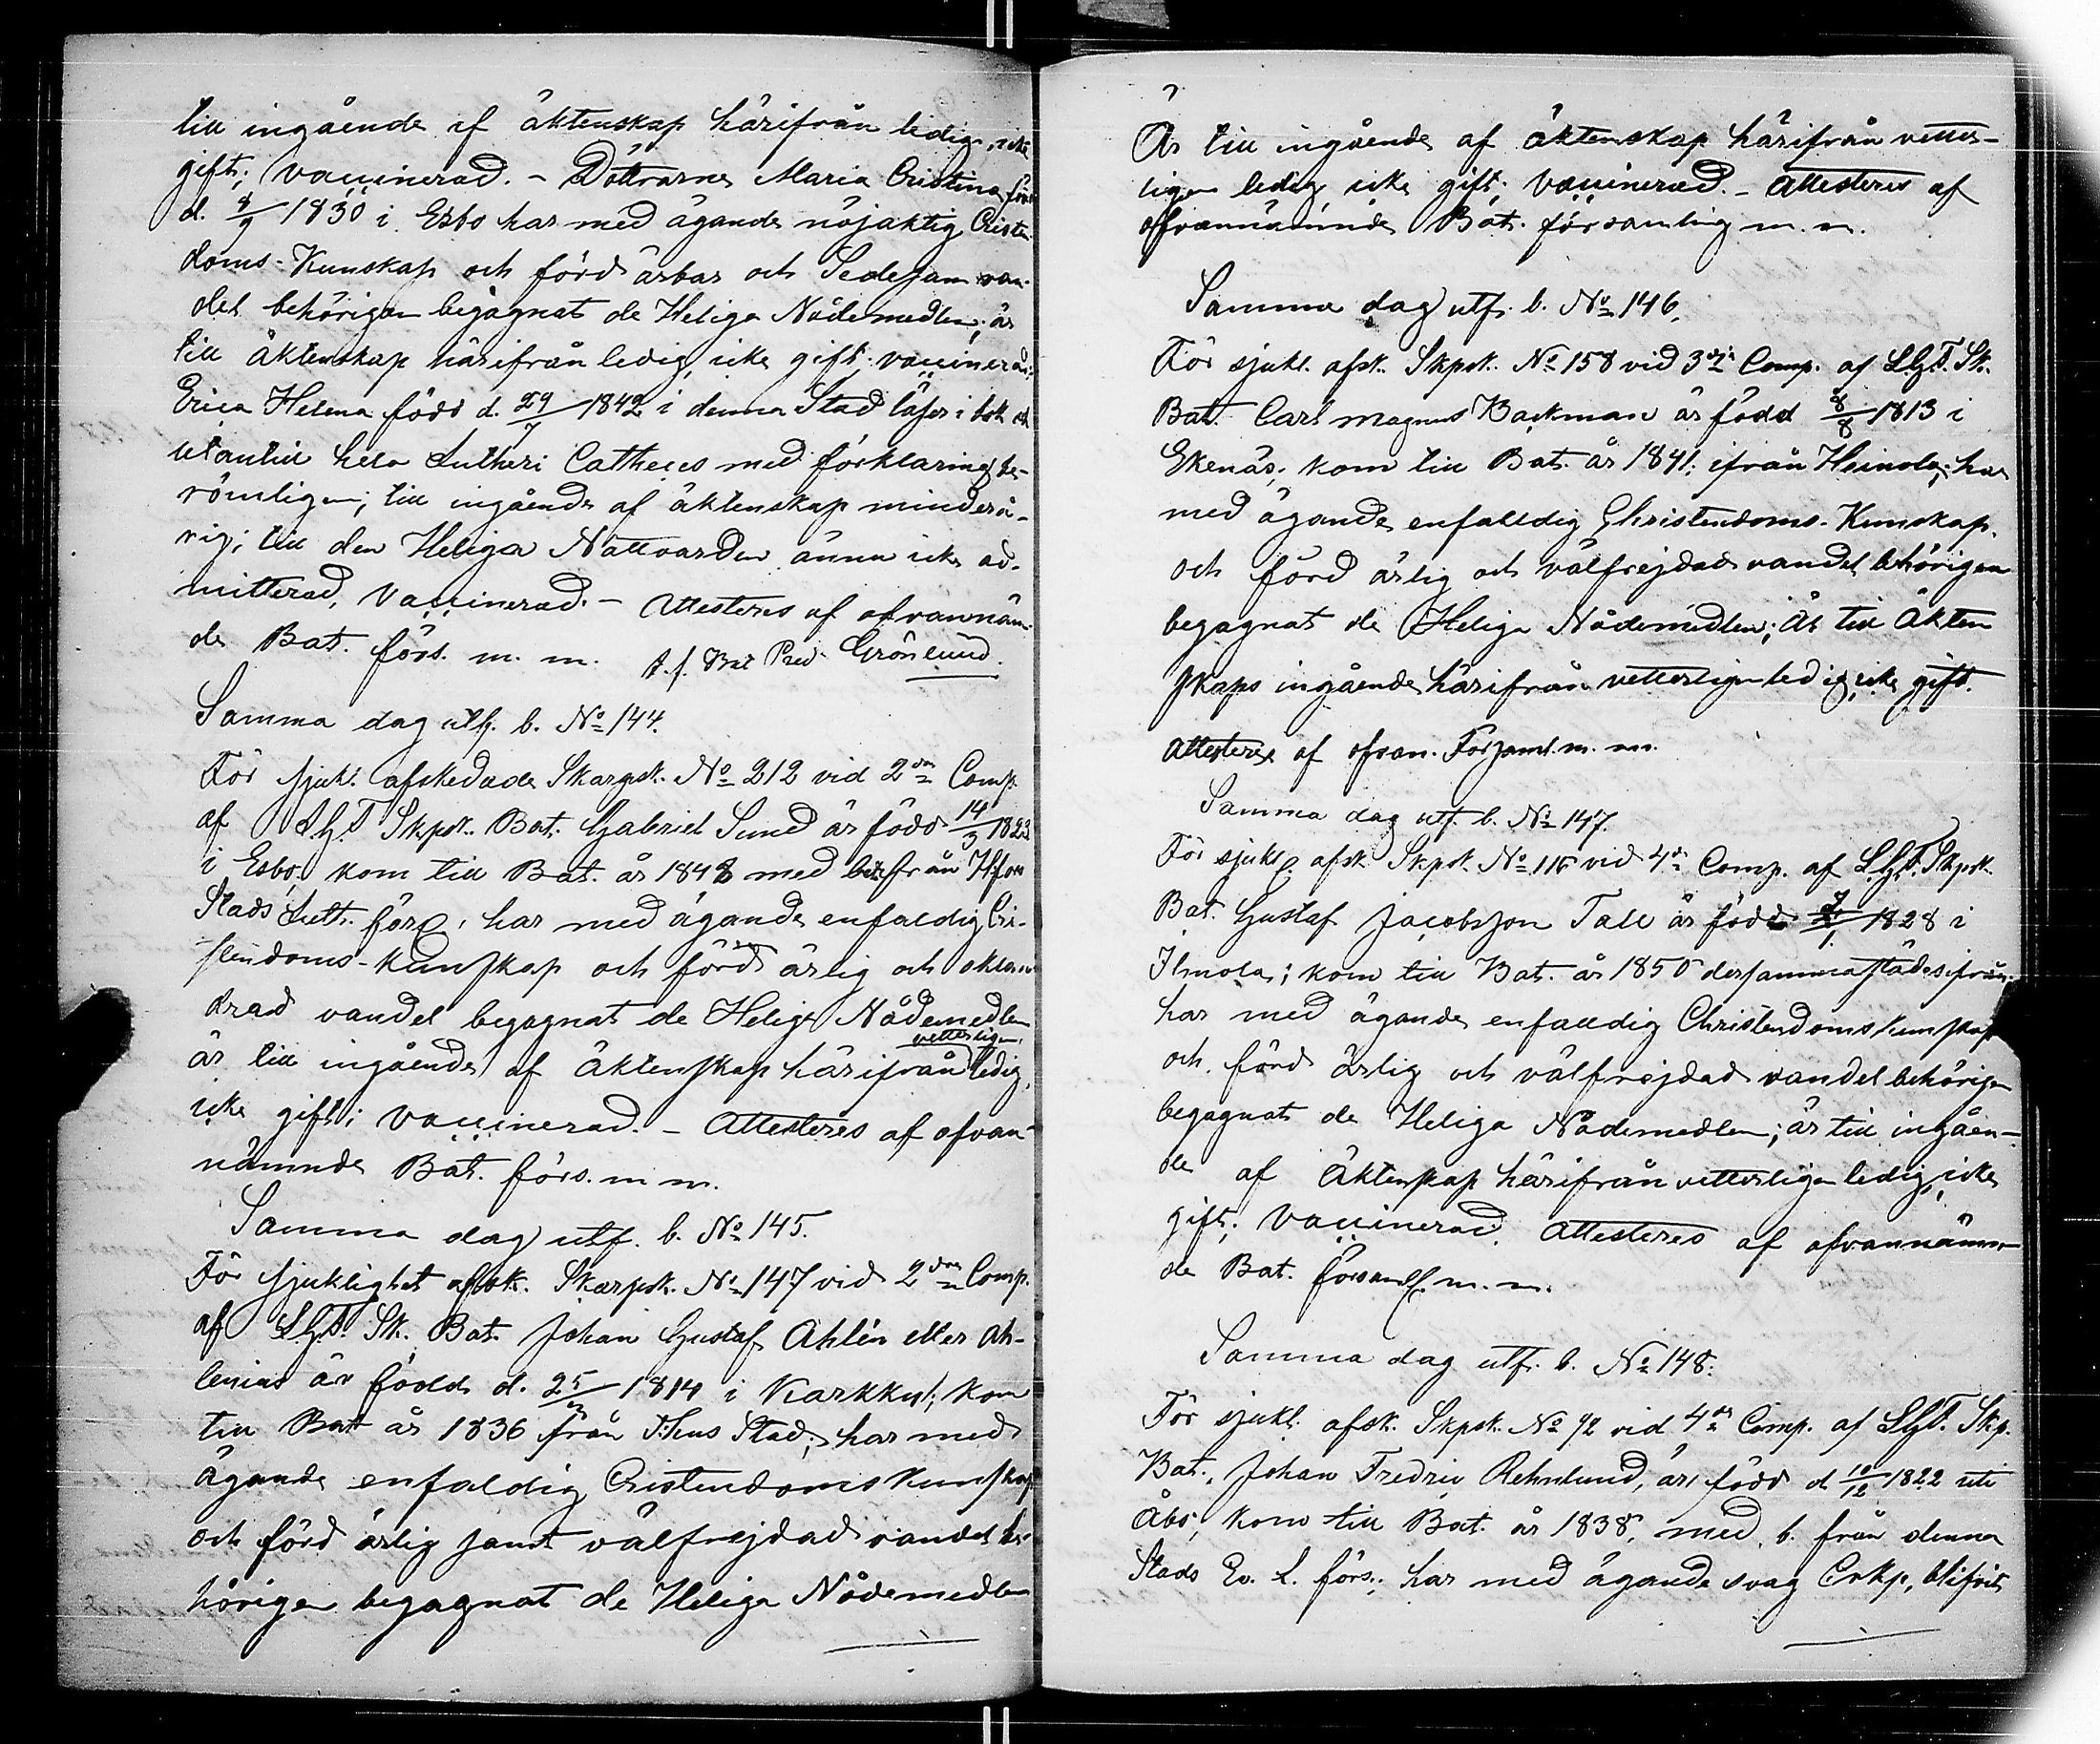 till ingående af äktenskap härifrån ledig, icke
gift; vaccinerad. - Döttrarne Maria Cristina född
d. 8/9 1830 i Esbo har med ägande nöjaktig Cristen
doms-Kunskap och förd ärbar och Sedesam van-
del behörigen begagnat de Heliga Nådemedlen; är
till äktenskap härifrån ledig, icke gift; vaccinerad;
Erica Helena född d. 29/7 1842 i denna Stad läser i bok och
utantill hela Lutheri Catheces med förklaring be-
römligen; till ingående af äktenskap minderå-
rig; till den Heliga Nattvarden ännu icke ad-
mitterad, Vaccinerad. - Attesteres af ofvannäm-
de Bat. förs. m. m. t. f. Bat Pred. Grönlund.
Samma dag utf. b. No 144.
För sjukl. afskedade Skarpsk. No 212 vid 2dra Comp.
af L.G.F. Skpsk. Bat. Gabriel Sund är född 14/3 1823
i Esbo, kom till Bat. år 1848 med b. från Hfors
Stads Luth. förs., har med ägande enfaldig Cri-
stendoms-kunskap och förd ärlig och oklan-
drad vandel begagnat de Heliga Nådemedlen
vetterligen
är till ingående af äktenskap härifrån ledig,
icke gift; vaccinerad. - Attesteres af ofvan-
nämnde Bat. förs. m m.
Samma dag utf. b. No 145.
För sjuklighet afsk. Skarpsk. No 147 vid 2dra Comp.
af L.G.F. Sk. Bat. Johan Gustaf Ahlén eller Ah-
lenius är född d. 25/3 1814 i Karkku; kom
till Batt år 1836 från T:hus Stad; har med
ägande enfaldig Cristendoms kunskap
och förd ärlig samt välfrejdad vandel be-
hörigen begagnat de Heliga Nådemedlen
Är till ingående af äktenskap härifrån vetter-
ligen ledig icke gift; Vaccinerad. - Attesteres af
ofvannämnde Bat. församling m. m.
Samma dag utf. b. No 146.
För sjukl. afsk. Skpsk. No 158 vid 3dje Comp. af L.G.F. Sk.
Bat. Carl Magnus Backman är född 8/8 1813 i
Ekenäs; kom till Bat. år 1841 ifrån Heinola; har
med ägande enfalldig Christendoms-Kunskap
och förd ärlig och välfrejdad vandel behörigen
begagnat de Heliga Nådemedlen; Är till Äkten
skaps ingående härifrån vetterligen ledig icke gift.
Attesteres af ofvan. Församl. m. m.
Samma dag utf. b. No 147.
För sjukl. afsk. Skpsk. No 116 vid 4de Comp. af L.G.F. Skpsk.
Bat. Gustaf Jacobsson Tall är född 1828 i
Ilmola; kom till Bat. år 1850 dersammastädes ifrån;
har med ägande enfalldig Christendoms kunskap
och förd ärlig och välfrejdad vandel behörigen
begagnat de Heliga Nådemedlen; är till ingåen-
de af Äktenskap härifrån vetterligen ledig, icke
gift; Vaccinerad. Attesteres af ofvannämn-
de Bat. församl. m. m.
Samma dag utf. b. No 148.
För sjukl. afsk. Skpsk. No 92 vid 4de Comp. af L.G.F. Skp.
Bat., Johan Fredric Rehnlund, är född d 10/12 1822 uti
Åbo, kom till Bat. år 1838, med b. från denna
Stads Ev. L. förs.; har med ägande svag Crkp, blifvit